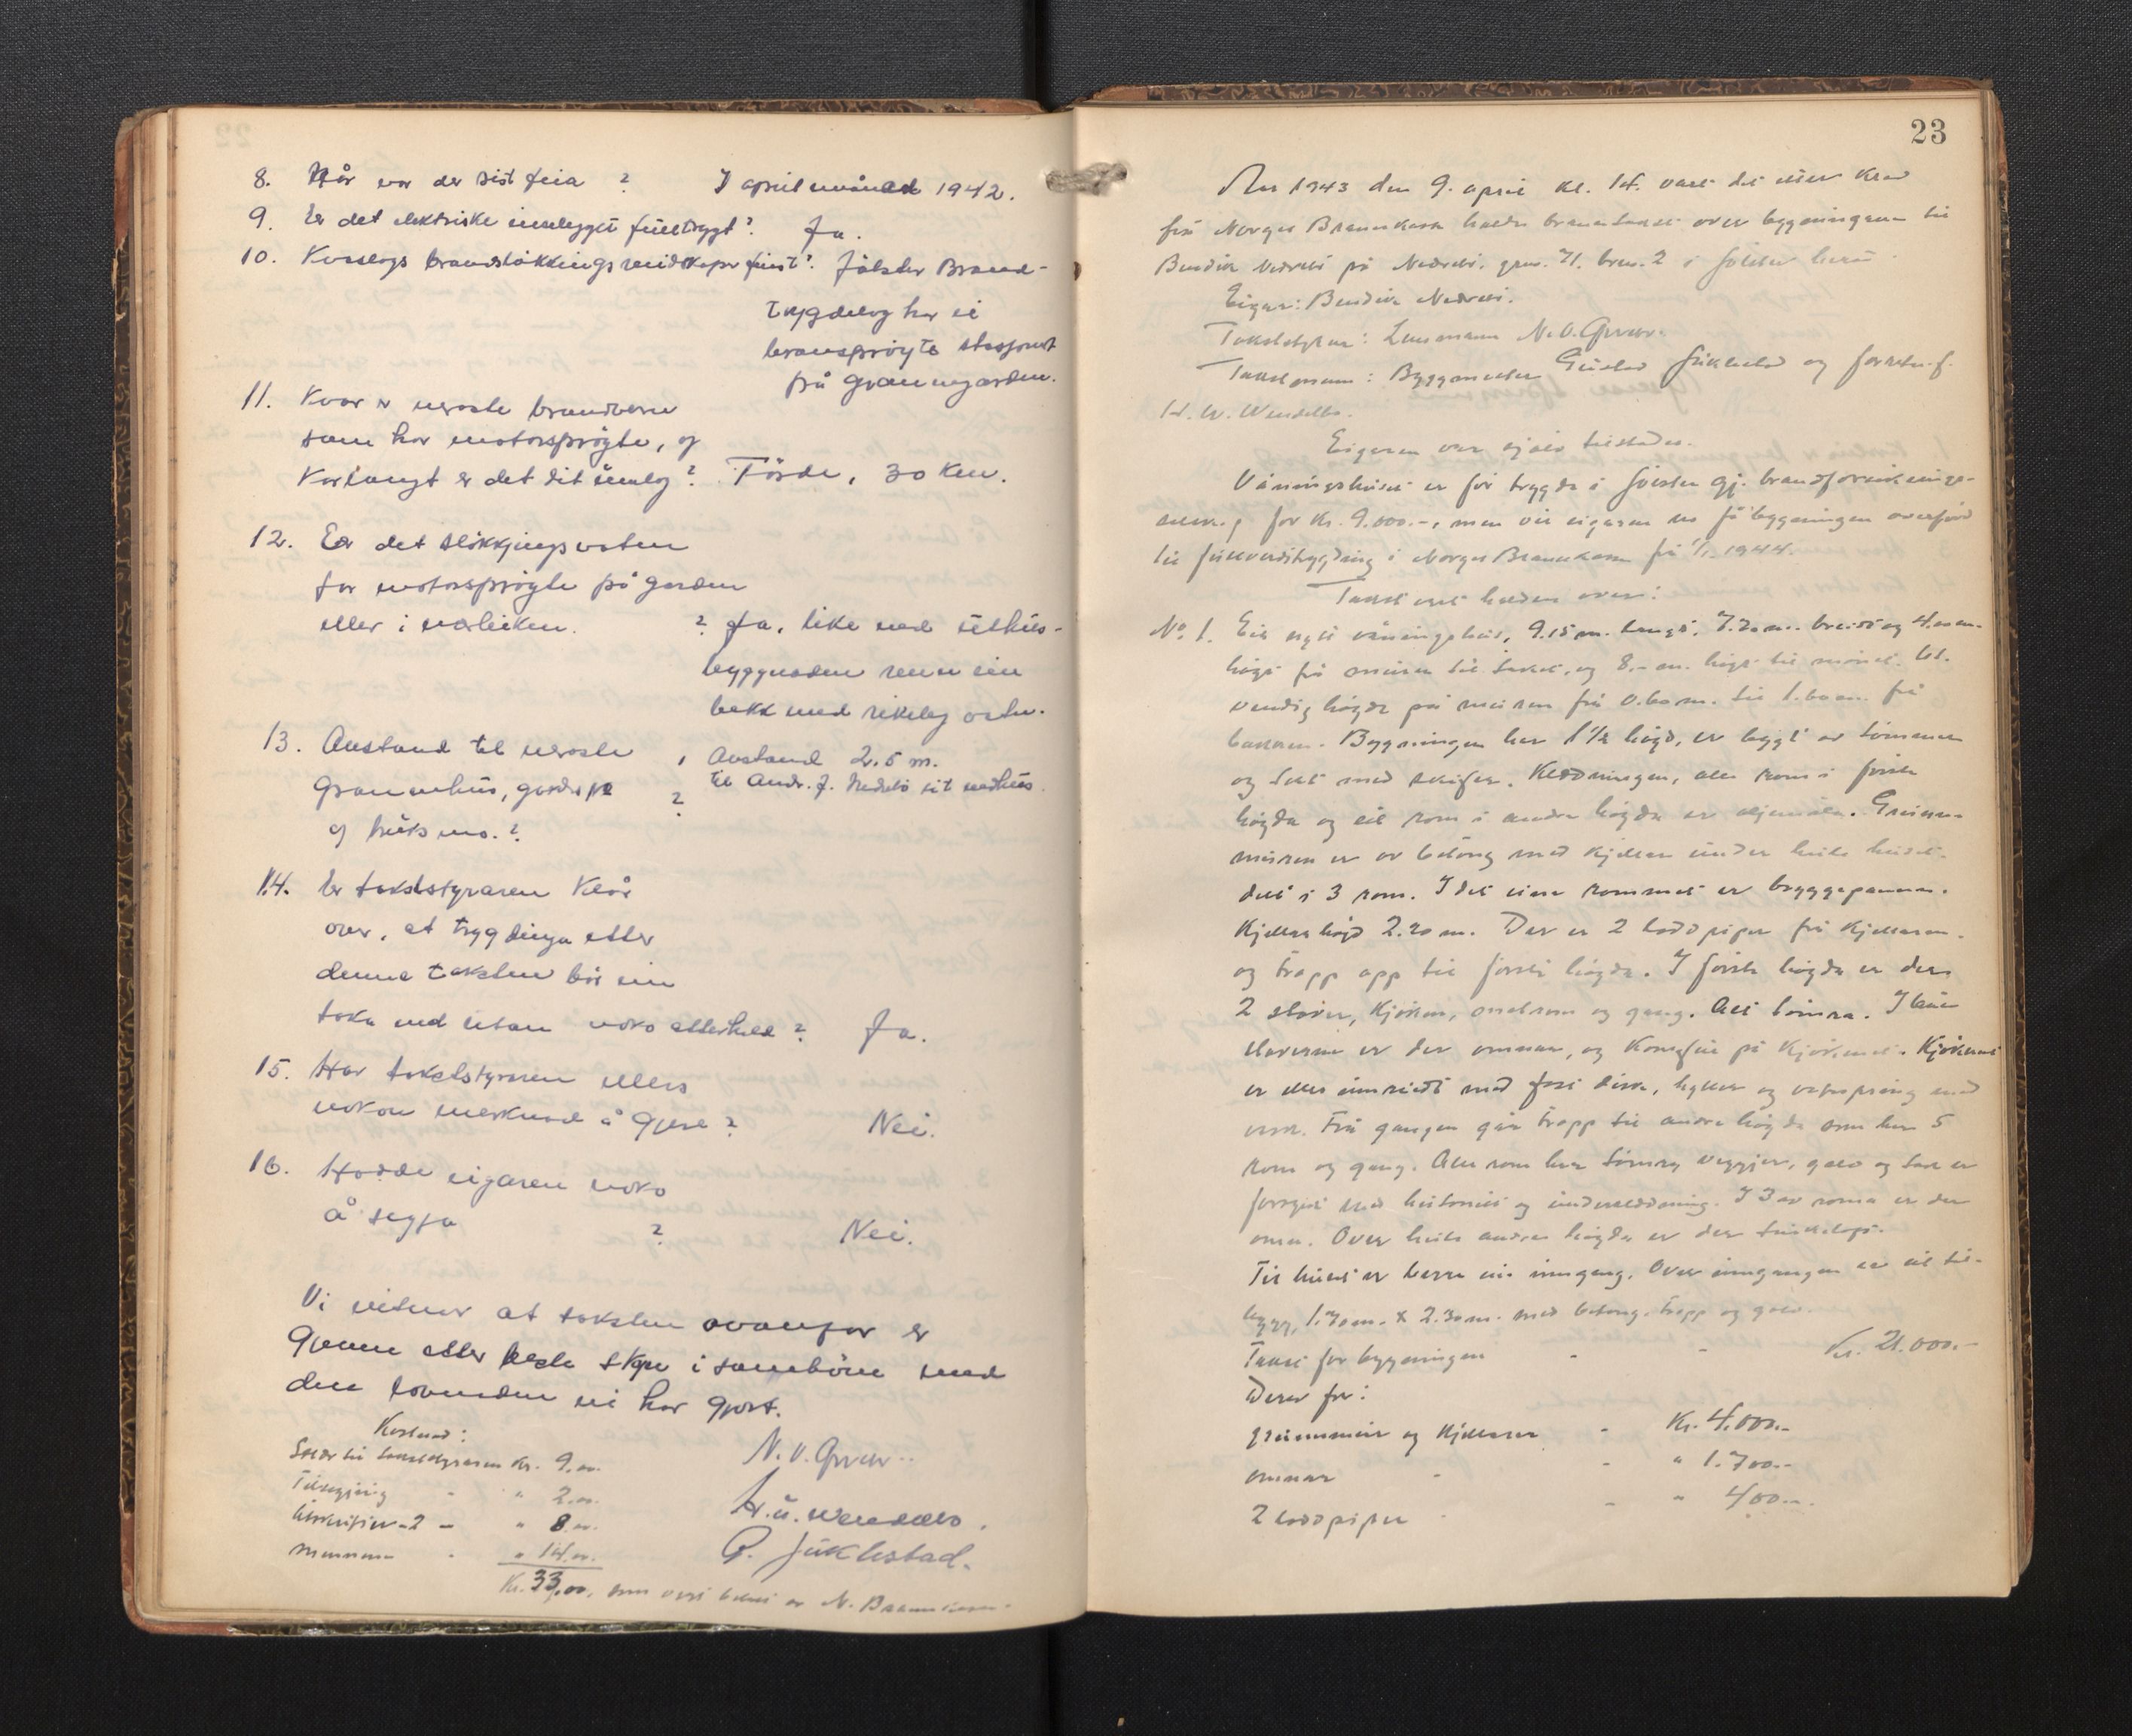 8. Når var der sist feia ? I april månad 1942.
9. Er det elektriske innlegget fullt trygt? Ja.
10. Kvaslags brandsløkkings reidskapr finst? Jølster Brand-
trygdelag har ei
bransprøyte stasjonert
på granngarden.
11. Kvar er næraste brandvern
som har motorsprøyte, og
Korlangt er det dit umlag? Förde, 30 Km.
12. Er det sløkkjingsvatn
for motorsprøyte på garden
eller i nærleiken. ? Ja, like ved uthus-
byggnaden renn ein
bekk med rikeleg vatn.
13. Avstand til næraste , Avstand 2.5 m.
Grannehus, gards pr ? til Andr. J. Nedrebö sit vedhus.
og husmo.?
14. Er takststyraren Klår
over, at trygdinga etter
denne taksten bör ein
taka ved utan noko atterhald? Ja.
15. Har takststyraren ellers
nokon merknad å gjere? Nei.
16. Hadde eigaren noko
å segja ? Nei.
Vi vitnar at taksten ovanfor er
gjevne etter beste skjøn i samhöve med
den lovnaden vi har gjort.
Kostnad:
til takststyraren Kr. 9.00. N. O. Grov
- " 2.00.
-2- " 8.00. H. U. Wendelbo.
- " 14.00. G. Juklestad.
Kr. 33,00, som vert betalt av N. Brannkasse.
23
År 1943 den 9. april Kl. 14. vart det etter Krav
frå Norges Brannkasse halde branntakst over bygningane til
Bendik Nedrebö på Nedrebö, gnr. 71. brnr. 2 i Jölster herad.
Eigar: Bendik Nedrebö.
Takststyrar: Lensmann N. O. Grov.
Takstmenn: Byggmester Gustav Juklestad og forretn.f.
H. U. Wendelbo.
Eigaren var sjölv tilstades.
Våningshuset er för trygda i Jölster gj. brandforsikrings-
for Kr. 9.000.-, men vil eigaren no få bygningen overförd
til fullverdstrygding i Norges Brannkasse frå 1/1-1944.
Takst vart halden over:
No. 1. Eit nytt våningshus, 9.15 m. langt, 7.70 m. breidt og 4.00 m.
högt frå muren til taket, og 8.- m. högt til mönet. Ut-
vendig högde på muren frå 0.60 m. til 1.60 m. frå
bakken. Bygningen har 1 1/2 högd, er bygt av tömmer
og tekt med skifer. Kledningen, alle rom i förste
högda og eit rom i andre högda er oljemåla. Grunn-
muren er av betong med kjellar under heile huset.
delt i 3 rom. I det eine rommet er bryggepanna.
Kjellarhögd 2.20 m. Der er 2 loddpiper frå Kjellaren.
og trapp opp til förste högda. I förste högda er der
2 stover, Kjöken, matrom og gang. Alt tömra. I
stovene er der omnar, og Komfyr på Kjökenet. Kjökenet
er elles innreidt med fast disk, hyller og vatspring med
vask. Frå gangen går trapp til andre högda som har 5
rom og gang. Alle rom har tömra veggjer, golv og tak er
forsynt med huntonitt og underkledning. I 3 av roma er der
omn. Over heile andre högda er der
Til huset er berre ein inngang. Over inngangen er eit til-
bygg, 1.70 m. x 2.30 m. med betong. trapp og golv.
Takst for bygningen - - Kr. 21.000.-
Derav for:
grunnmur og Kjellarar - Kr. 4.000.-
omnar - - " 1.700.-
2 loddpiper - - " 400.-